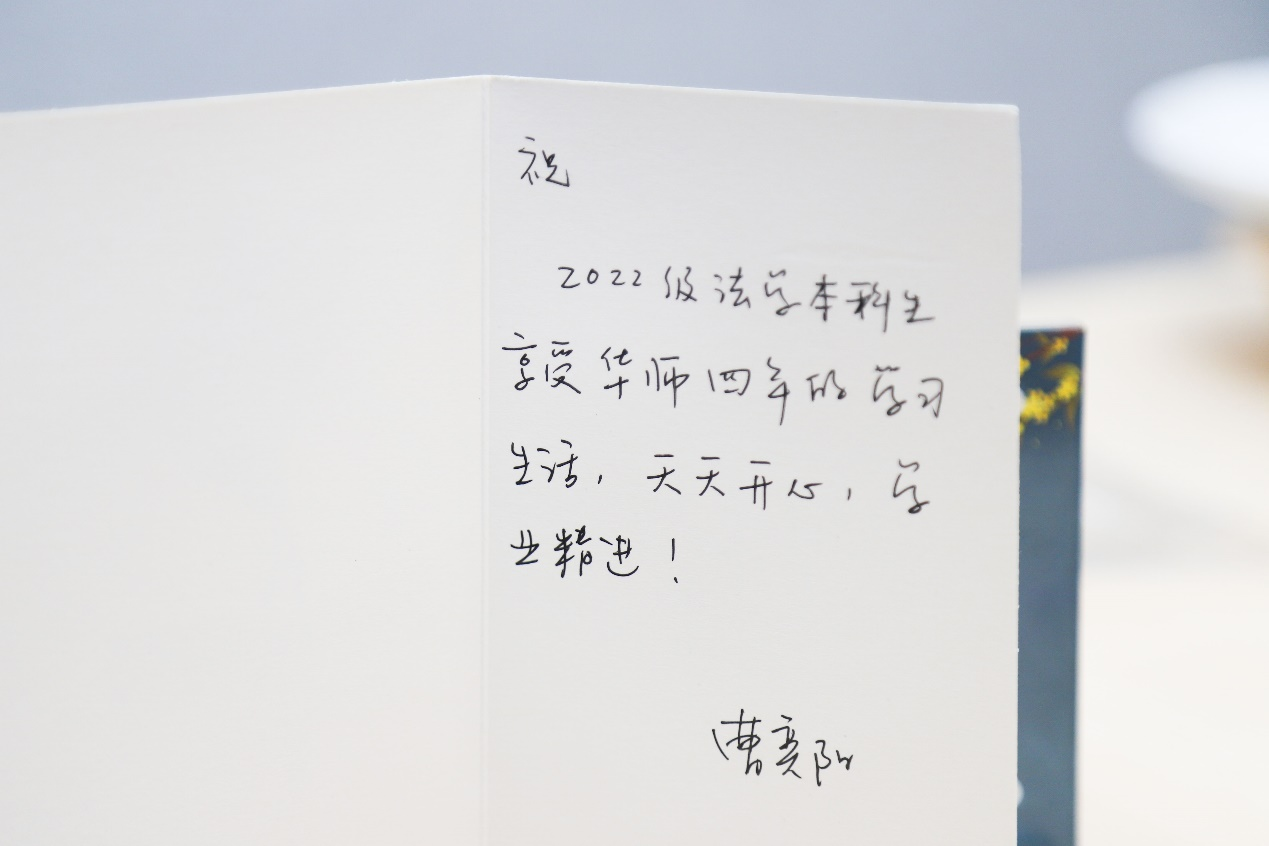 祝
2022级法学本科生
享受华师四年的学习
生活,天天开心,学
业精进!
曹奕阳